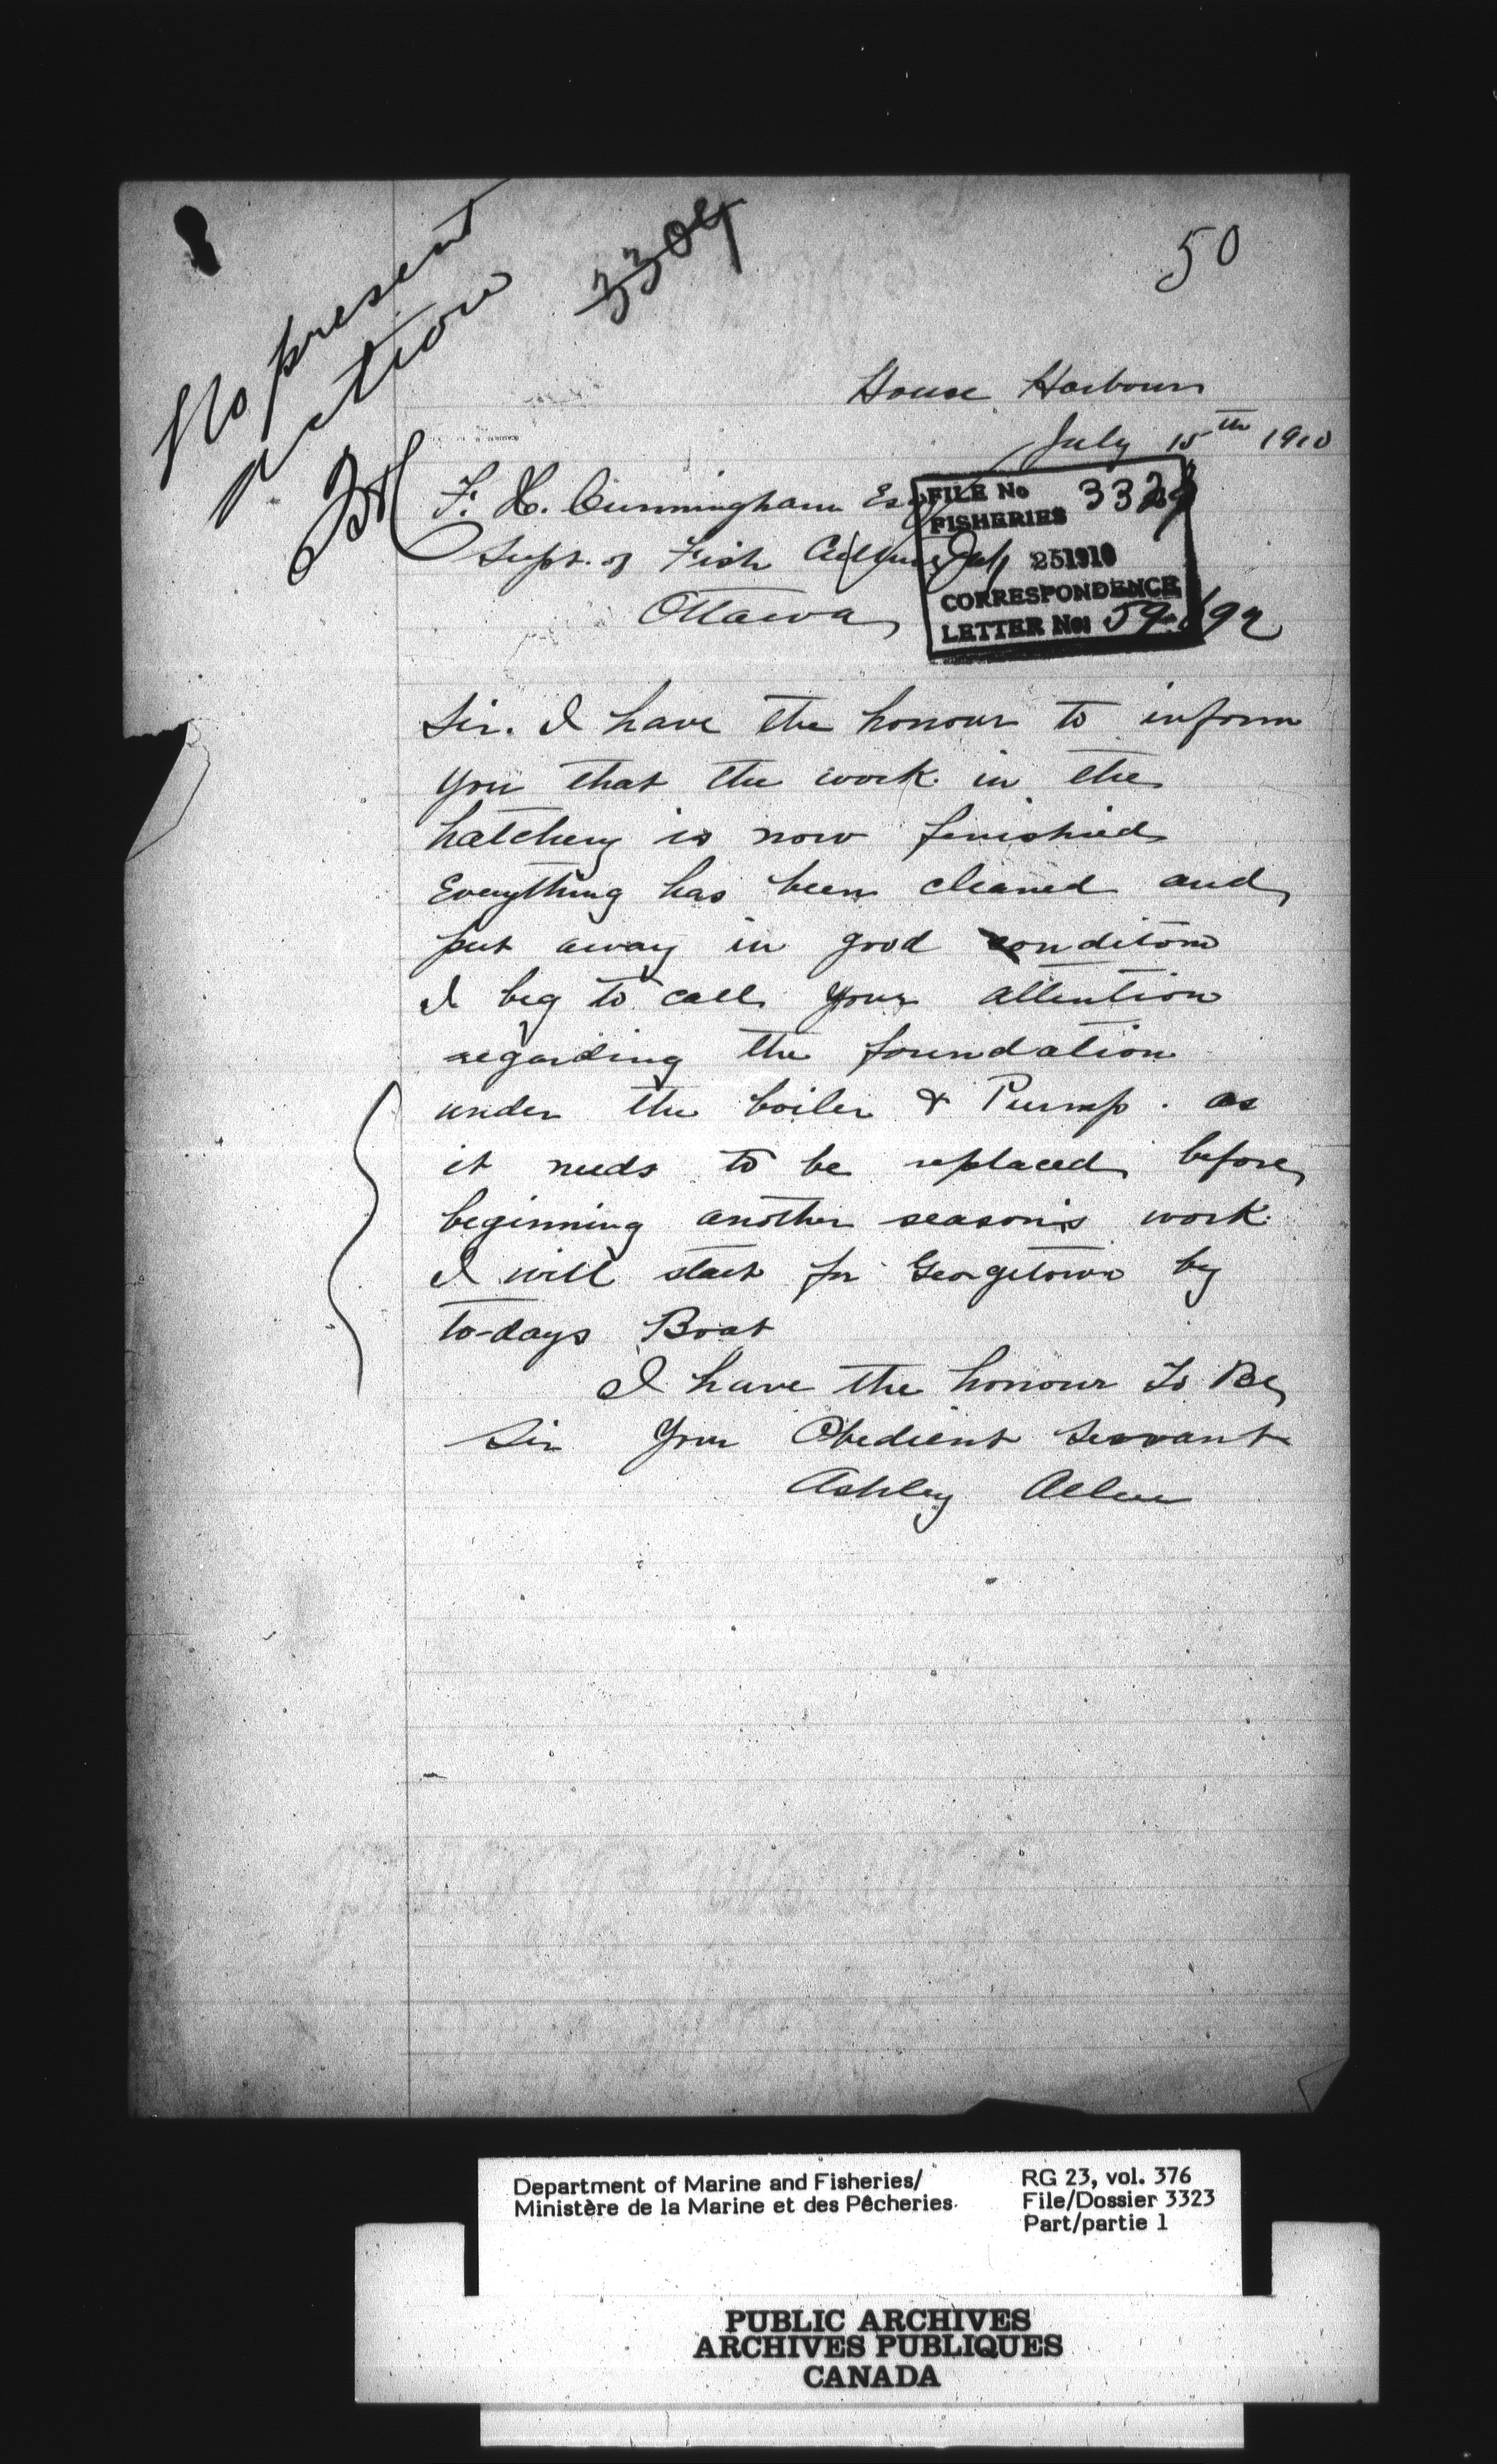 No present
action
3304
50
House Harbour
July 15th 1910
F. H. Cunningham Esq
Supt. of Fish Culture
Ottawa
FILE No 332
FISHERIES
Jul 25 1910
CORRESPONDENCE
LETTER No: 59
Sir. I have the honour to inform
you that the work in the
hatchery is now finishied
Everything has been cleaned and
put away in good conditon
I beg to call your attention
regarding the foundation
under the boiler & Pump. as
it needs to be replaced before
beginning another season's work.
I will start for Georgetown by
to-days Boat
I have the honour To Be
Sir Your Obedient Servant
Ashley Allen
Department of Marine and Fisheries/
Ministère de la Marine et des Pêcheries.
RG 23, vol. 376
File/Dossier 3323
Part/partie 1
PUBLIC ARCHIVES
ARCHIVES PUBLIQUES
CANADA